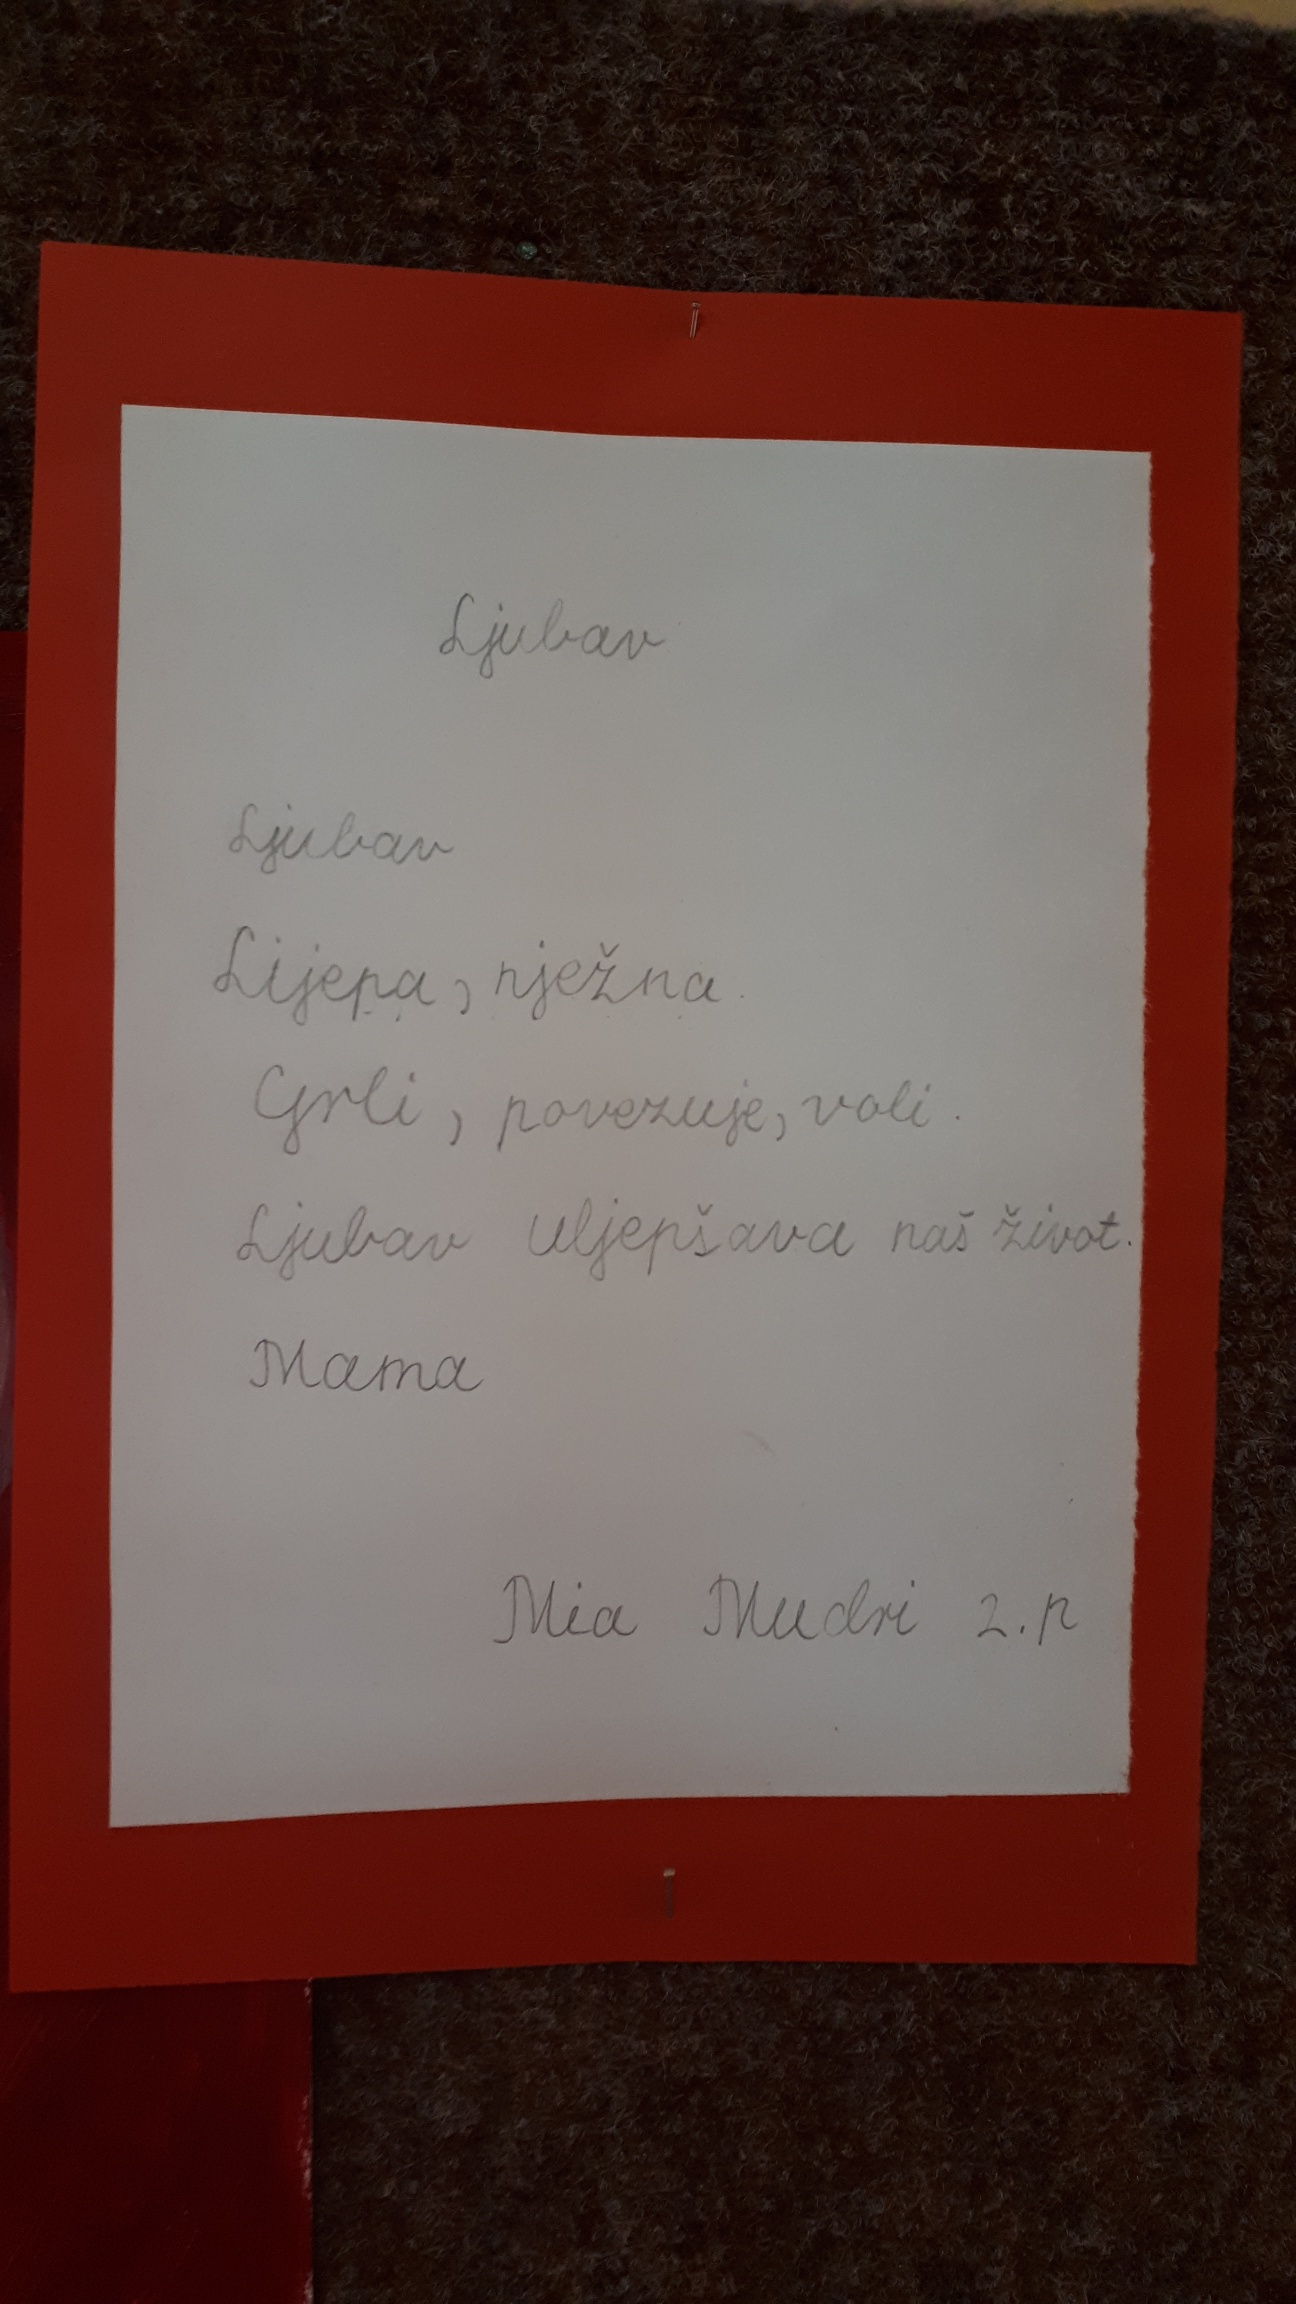 Ljubav
Ljubav
Lijepa, nježna.
Grli, povezuje, voli.
Ljubav uljepšava naš život.
Mama
Mia Mudri 2.p